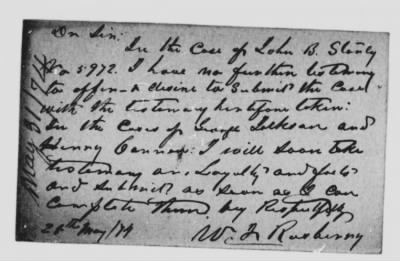 Dr Sir:
In the Case of John B. Stinly
No 5972. I have no further testimony
to offer & desire to Submit the Case
with the testimony heretofore taken:
In the Cases of George Jackson and
Henry Cannon: I will soon take
testimony on Loyalty and facts
and Submit as soon as I can
Complete them. Very Respectfully
20th May/79 W. F. Rasberry
May 31